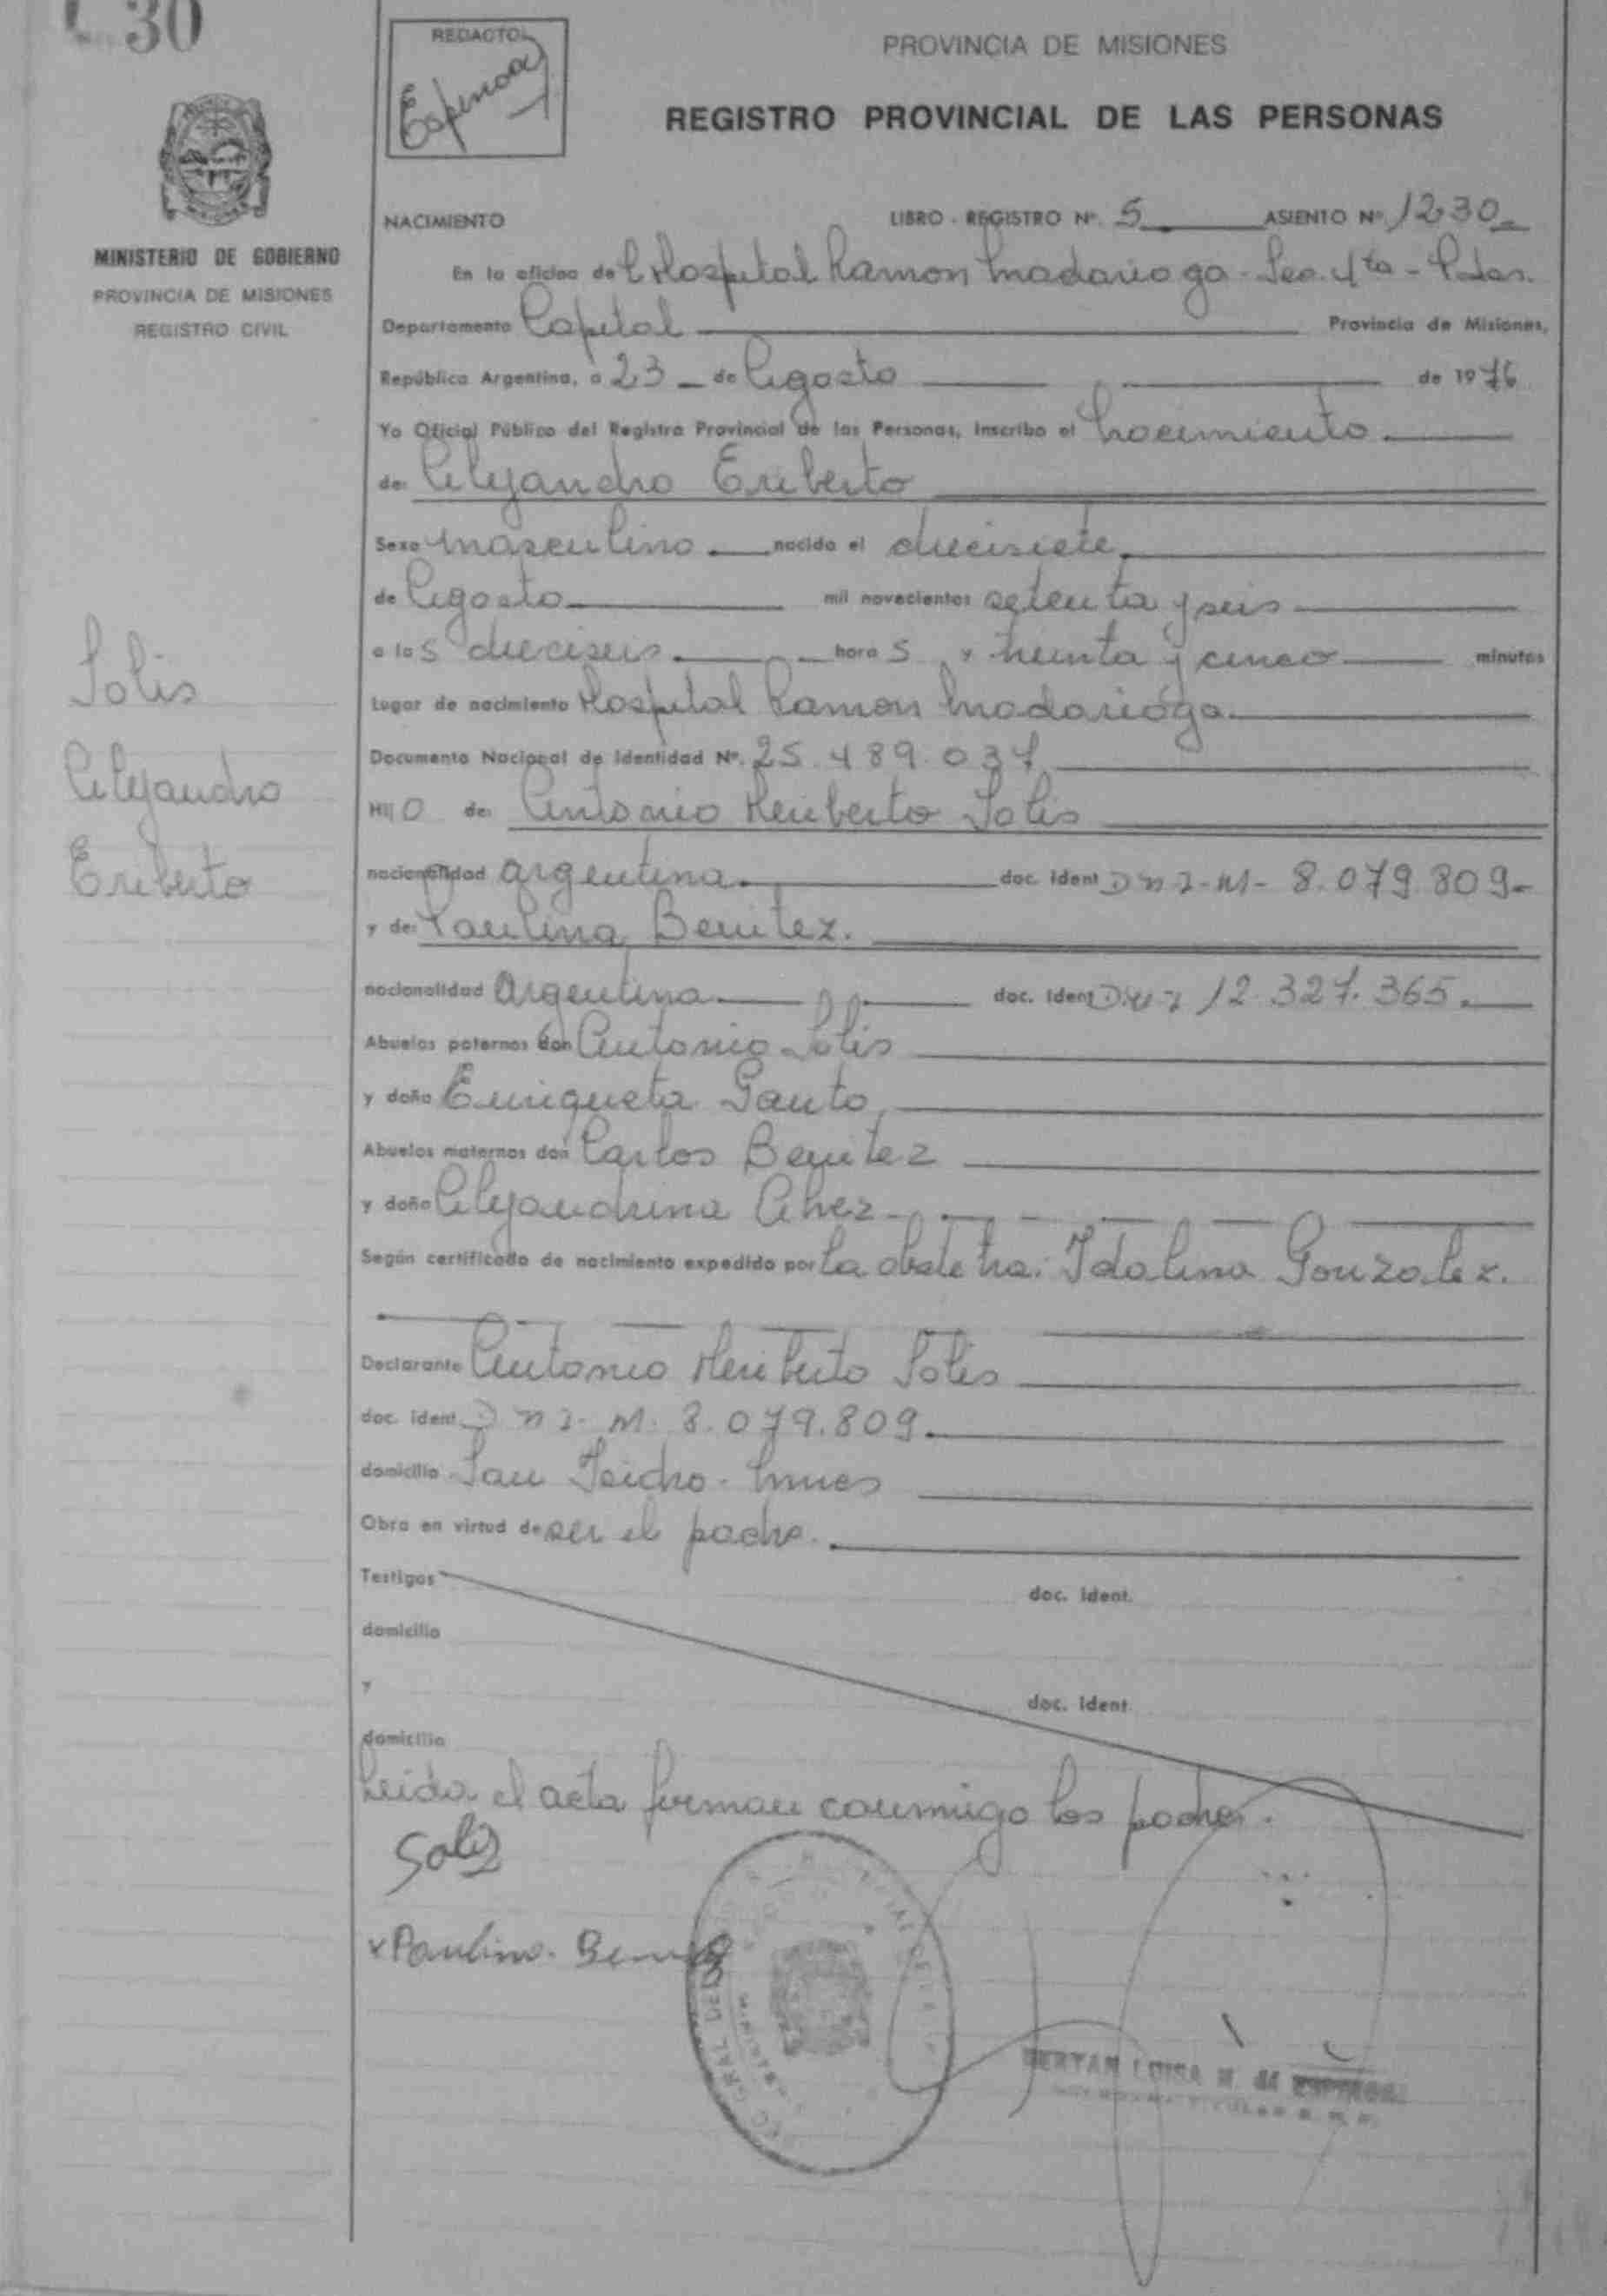 30
REDACTO
Espinosa
PROVINCIA DE MISIONES
REGISTRO PROVINCIAL DE LAS PERSONAS
MINISTERIO DE GOBIERNO
PROVINCIA DE MISIONES
REGISTRO CIVIL
NACIMIENTO LIBRO - REGISTRO Nº. 5 ASIENTO Nº 1230
En la oficina de Hospital Ramon Madariaga - Sec. 4ta - Pdas.
Departamento Capital Provincia de Misiones,
República Argentina, a 23 de Agosto de 1976
Yo Oficial Público del Registro Provincial de las Personas, inscribo el Nacimiento
de: Alejandro Eriberto
Sexo masculino nacido el diecisiete
de Agosto mil novecientos setenta y seis
a las dieciseis horas y treinta y cinco minutos
Lugar de nacimiento Hospital Ramon Madariaga
Documento Nacional de Identidad Nº. 25.489.037
Hijo de: Antonio Heriberto Solis
nacionalidad argentina doc. ident DNI-M- 8.079.809-
y de: Paulina Benitez.
nacionalidad Argentina doc. ident DNI 12.327.365.
Abuelos paternos don Antonio Solis
y doña Enriqueta Santo
Abuelos maternos don Carlos Benitez
y doña Alejandrina Alvez
Según certificado de nacimiento expedido por La obstetra. Idalina Gonzalez.
Declarante Antonio Heriberto Solis
doc. ident. DNI. M. 8.079.809.
domicilio San Isidro - Mnes
Obra en virtud de ser el padre.
Testigos doc. ident.
domicilio
y doc. ident.
domicilio
Leida el acta firman conmigo los padres.
Solis
x Paulina. Benitez
LUISA M. de
Solis
Alejandro
Eriberto